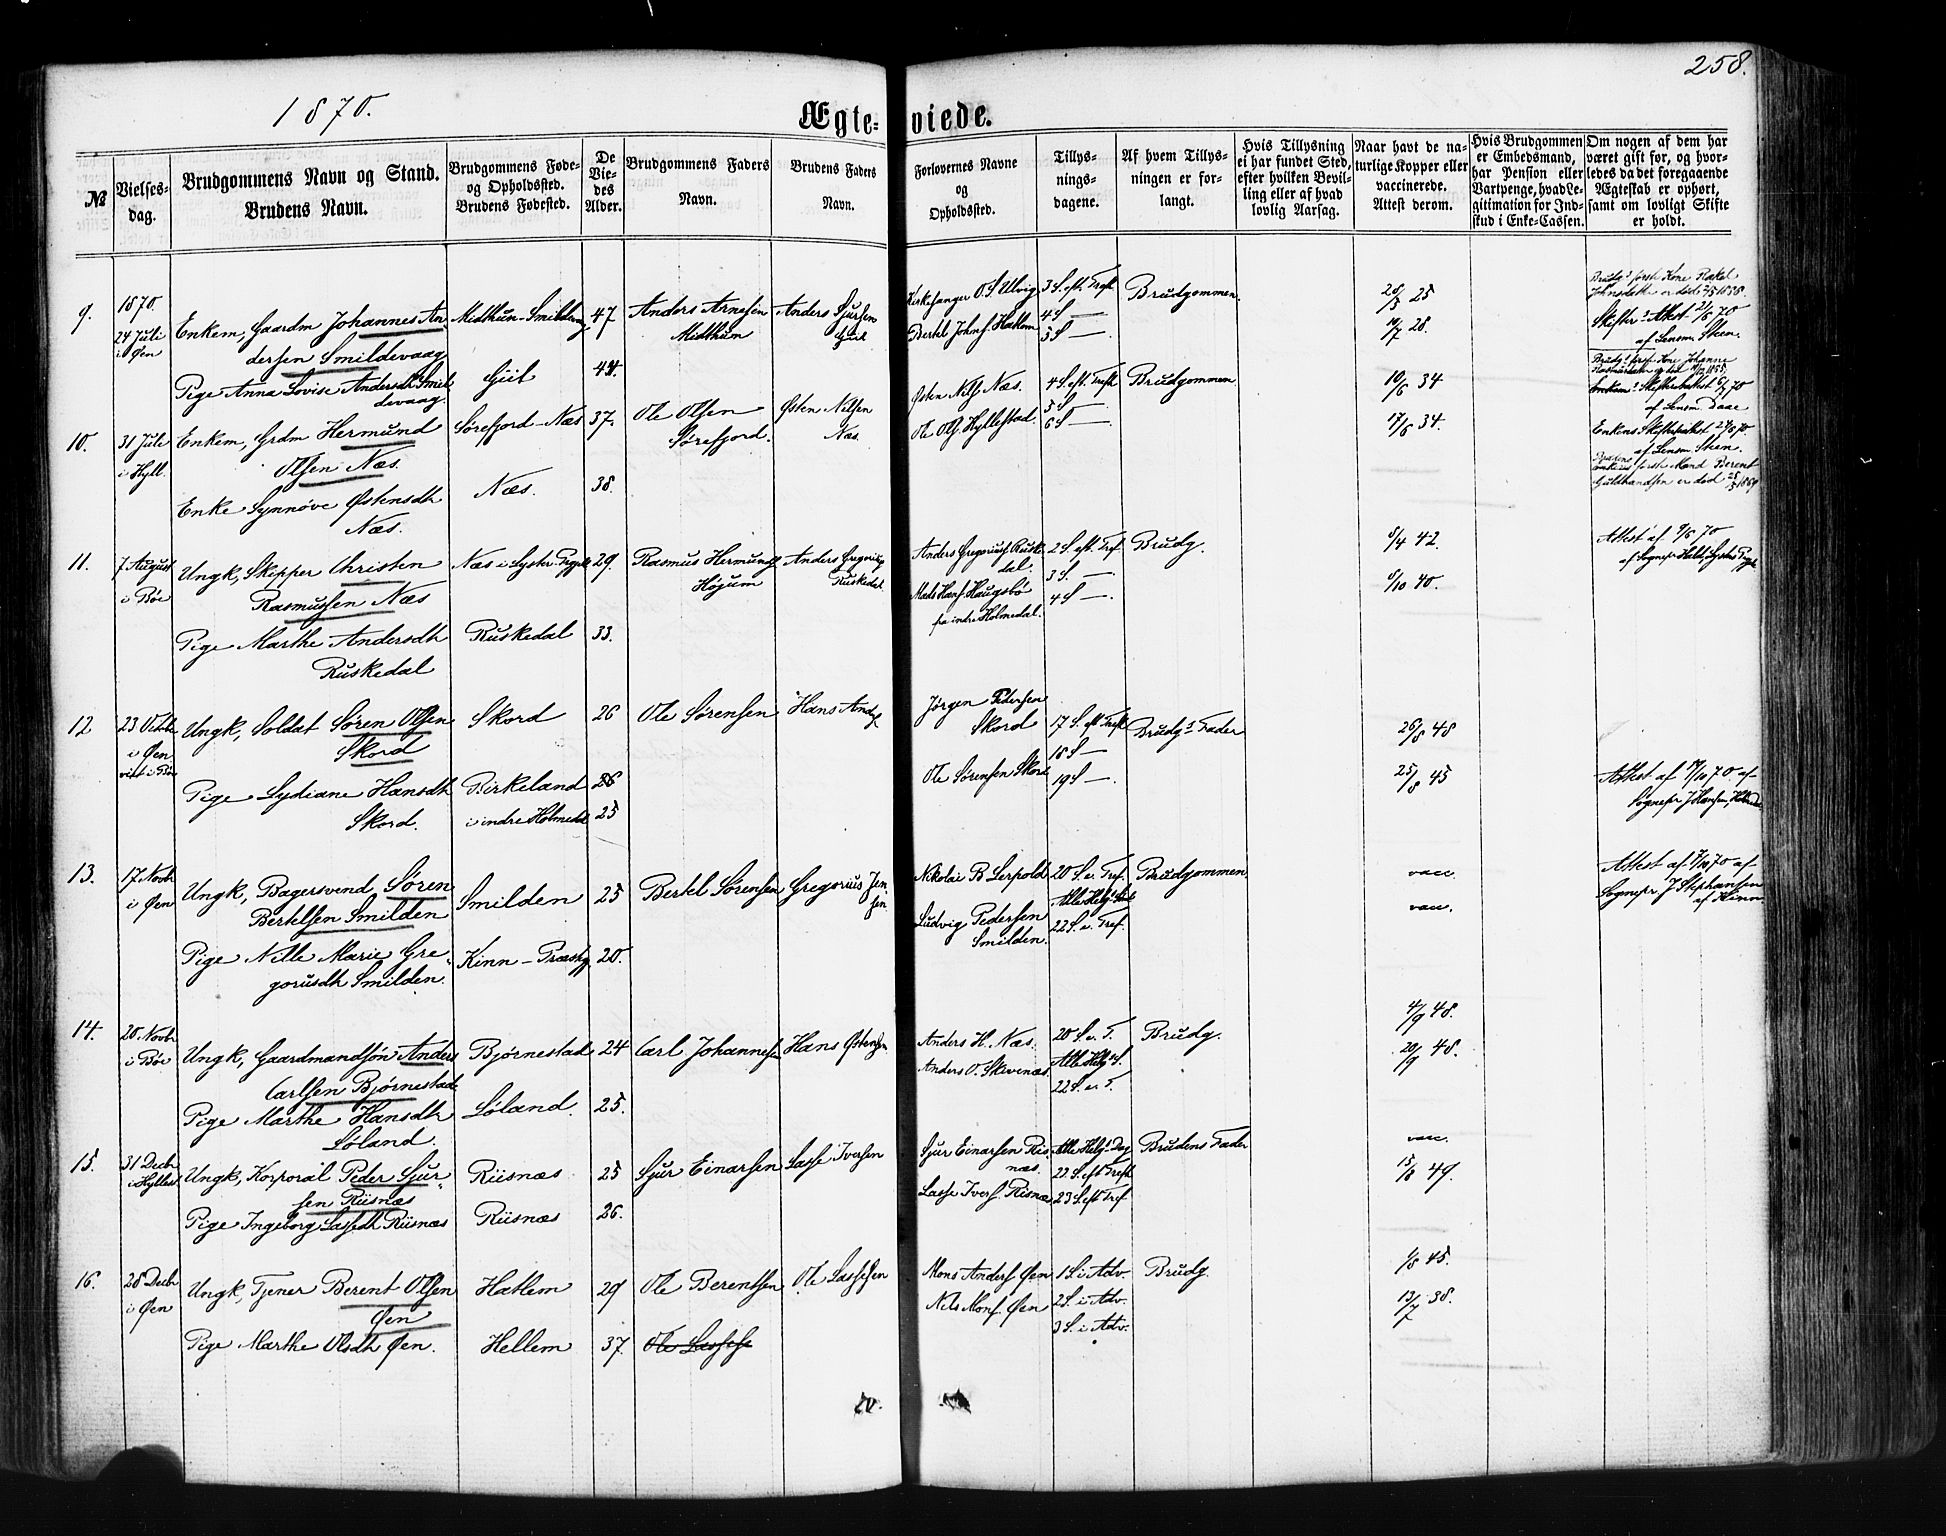 258.
1870.
Ægte- viede.
№
Vielses-
dag.
Brudgommens Navn og Stand.
Brudens Navn.
Brudgommens Føde-
og Opholdssted.
Brudens Fødested.
De
Vie-
des
Alder.
Brudgommens Faders
Navn.
Brudens Faders
Navn.
Forlovernes Navne
og
Opholdssted.
Tillys-
nings-
dagene.
Af hvem Tillys-
ningen er for-
langt.
Hvis Tillysning
ei har fundet Sted,
efter hvilken Bevil-
ling eller af hvad
lovlig Aarsag.
Naar havt de na-
turlige Kopper eller
vaccinerede.
Attest derom.
Hvis Brudgommen
er Embedsmand,
har Pension eller
Vartpenge, hvad Le-
gitimation for Ind-
skud i Enke-Cassen.
Om nogen af dem har
været gift før, og hvor-
ledes da det foregaaende
Ægteskab er ophørt,
samt om lovligt Skifte
er holdt.
9.
1870.
24 Juli
i Øen
Enkem, Gaardm Johannes An-
dersen Smildevaag
Pige Anna Lovise Andersdt Smil
devaag.
Midthun-Smildevaag
Giil
47
44.
Anders Arnesen
Midthun
Anders Sjursen
Giil
Kirkesanger O. S. Ulvig
Bertel Johns. Hatlem
3 S. eft. Trefk
4 S —
5 S —
Brudgommen.
20/5 25
10/7 28.
Brudgs første Kone Rakel
Johnsdatter er død 2/5 1858.
Skifter. Attest 21/6 70
af Lensm. Steen.
10.
31 Juli
i Hyll.
Enkem, Grdm Hermund
Olsen Næs.
Enke Synnøve Østensdh
Næs.
Sørefjord-Næs
Næs.
37.
38.
Ole Olsen
Sørefjord.
Østen Nilsen
Næs.
Østen Nils. Næs.
Ole Ols. Hyllestad.
4 S. eft. Trefk
5 S —
6 S —
Brudgommen
10/6 34
17/6 34.
Brudgs først Kone Johanne
af Lensm. Daae
Enkens Skifteattest 27/6 70.
af Lensm. Steen.
første Mand Berent
Guldbrandsen er død 25/5 1869
11.
7 August
i Bøe
Ungk, Skipper Christen
Rasmussen Næs
Pige Marthe Andersdh
Ruskedal
Næs i Lyster Prgjld
Ruskedal
29.
33.
Rasmus Hermunds
Højum
Anders Gregorius
Ruskedal.
Anders Gregorius. Ruske-
dal.
Mads Hans. Haugsbø
fra indre Holmedal.
2 S. eft. Tref.
3 S. —
4 S —.
Brudg.
8/4 42.
8/10 40.
Attest af 9/6 70
12
23 Octbr
i Øen
viet i Bøe
Ungk, Soldat Søren Olsen
Skord
Pige Lydiane Hansdh
Skord.
Skord
Birkeland
i indre Holmedal
26
26
25
Ole Sørensen
Hans Ands
Jørgen Pedersen
Skord
Ole Sørensen Skord
17 S. eft Trefk
18 S —
19 S —.
Brudgs Fader
26/8 48
25/8 45
Attest af 17/10 70. af
Sognepr J. Hansen, Holmedal
13.
17 Novbr
i Øen
Ungk, Bagersvend Søren
Bertelsen Smilden
Pige Nille Marie Gre-
gorusdh Smilden.
Smilden
Kinn - Præstg.
25
20.
Bertel Sørensen
Gregorius Jen-
sen.
Nikolai B Lerpold
Ludvig Pedersen
Smilden.
20 S. e. Tref.
22 S. e. Tref.
Brudgommen.
vacc.
vacc.
Attest af 7/10 70 af
Sognepr J. Stephansen
af Kinn
14.
20 Novbr
i Bøe
Ungk, Gaardmandssøn Anders
Carlsen Bjørnestad
Pige Marthe Hansdh
Løland.
Bjørnestad
Løland.
24
25.
Carl Johannesen
Hans Østensen
Anders H. Næs.
Anders O. Skivenæs.
20 S. e. T.
Alle Helg. S.
22 S. e. T.
Brudg.
4/9 48.
20/9 48.
15.
31 Decbr
i Hyllest
Ungk, Korporal Peder Sjur-
sen Riisnæs
Pige Ingeborg Lassedh Riisnæs
Riisnæs
Riisnæs
25
26.
Sjur Einarsen
Lasse Iversen
Sjur Einarsen Ris-
næs.
Lasse Ivers. Risnæs
Alle Helgs Dag
22 S. eft Trefk
23 S. eft Tref
Brudens Fader
vacc.
15/8 49.
16.
28 Decbr
i Øen
Ungk, Tjener Berent Olsen
Øen
Pige Marthe Olsdh Øen.
Hatlem
Hellem
29
37.
Ole Berentsen
Ole Lassese
Ole Lassesen
Mons Anders. Øen
Nils Mons. Øen
1 S. i Adv.
2 S. i Adv.
3 S. i Adv.
Brudg.
1/8 45.
13/7 38.